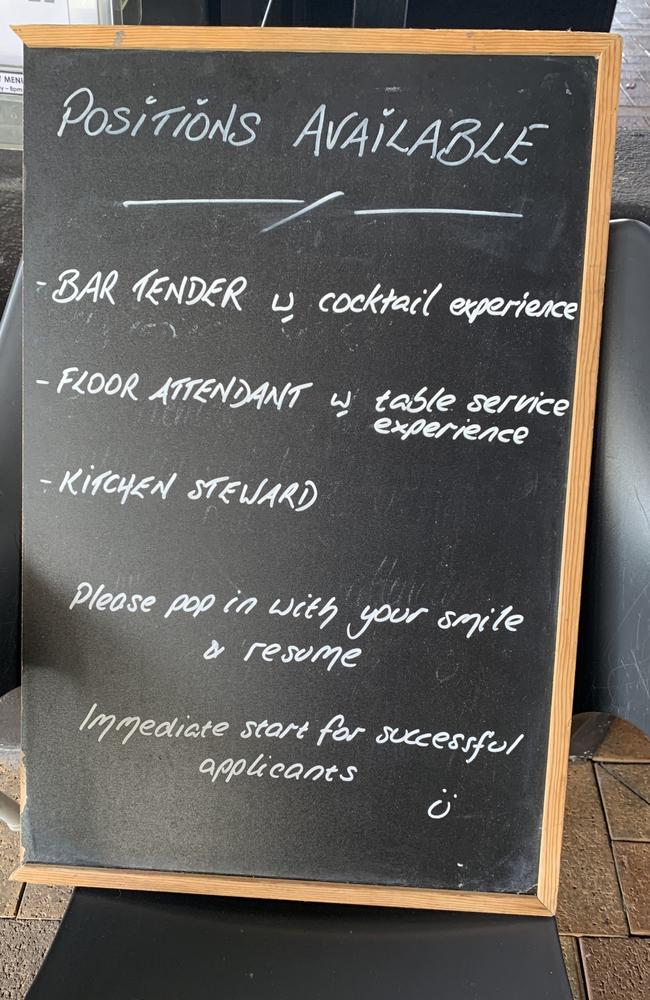 POSITIONS AVAILABLE
- BAR TENDER w cocktail experience
- FLOOR ATTENDANT w table service
experience
- KITCHEN STEWARD
Please pop in with your smile
& resume
Immediate start for successful
applicants